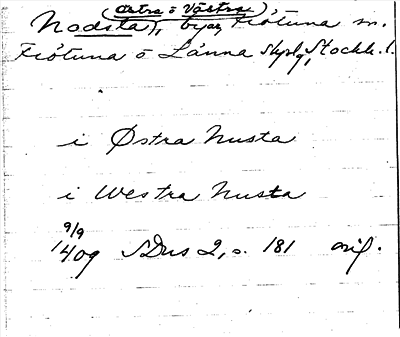 (Östra o Västra),
Nodsta, byar, Frötuna sn.
Frötuna o Länna skplg, Stockh. l.
i Østra Nusta
i Westra Nusta
9/9
1409 SDns 2, s. 181 orig.